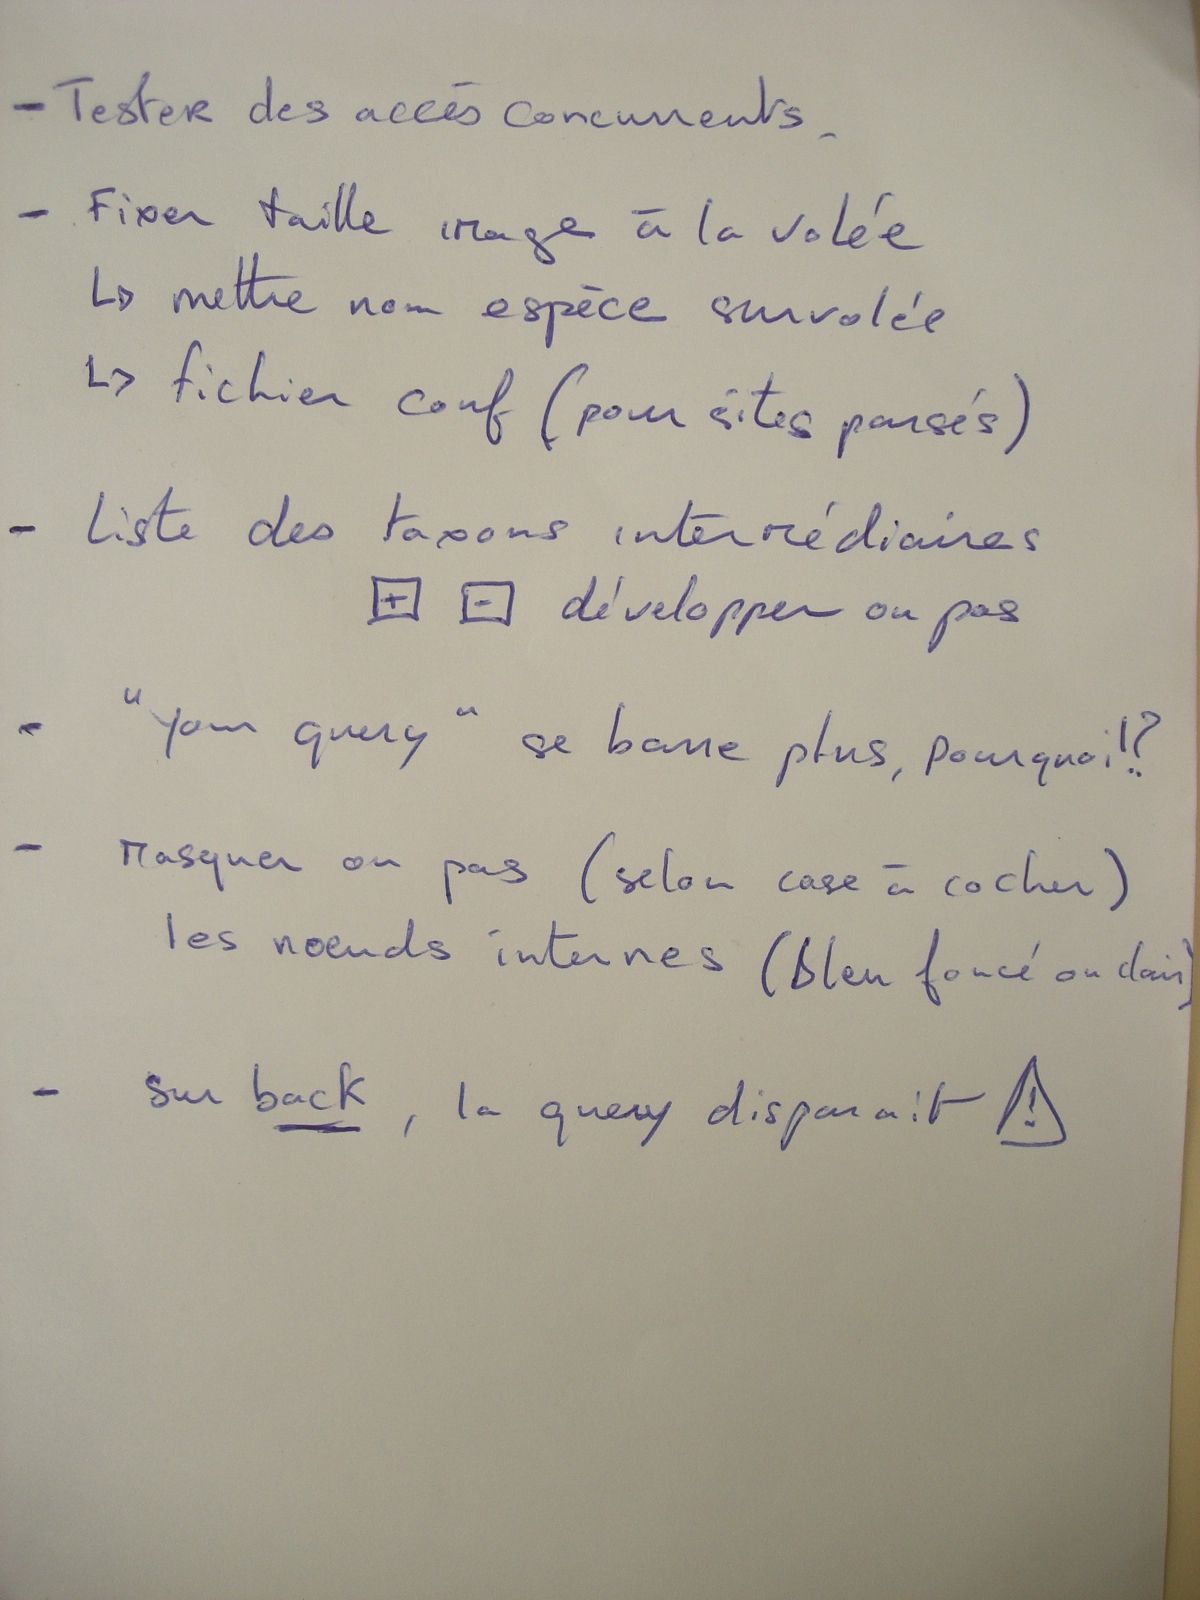 - Tester des accès concurrents.
- Fixer taille image à la volée
↳ mettre nom espèce survolée
↳ fichier conf (pour sites parsés)
- Liste des taxons intermédiaires
[+] [-] développer ou pas
- "Your query" se barre plus, pourquoi!?
- Masquer ou pas (selon case à cocher)
les noeuds internes (bleu foncé ou clair)
- sur back, la query disparait ⚠